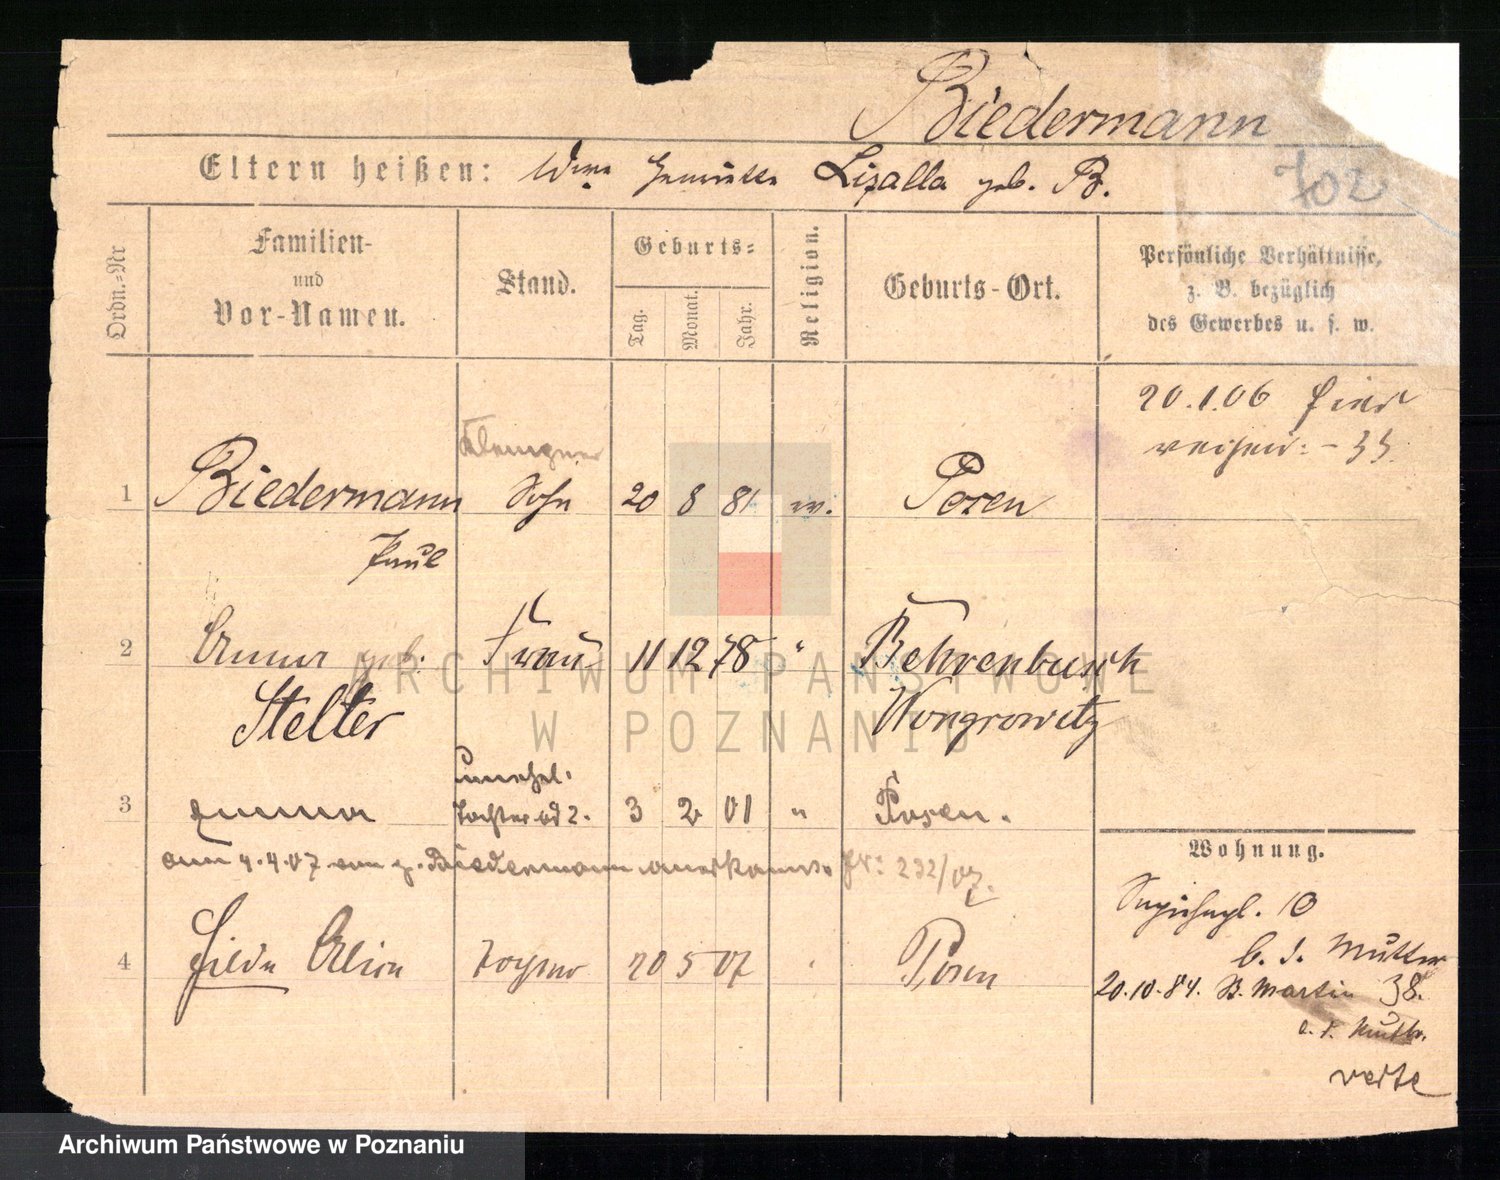 Biedermann
Eltern heißen: Wwe Lizalla geb. B.
702
Ordn.-Nr
Familien-
und
Vor-Namen.
Stand.
Geburts-
Tag.
Monat.
Jahr.
Religion.
Geburts-Ort.
Persönliche Verhältnisse,
z. B. bezüglich
des Gewerbes u. s. w.
20.1.06
33
Klempner
1 Biedermann Sohn 20 8 81 ev. Posen
Paul
2 Anna geb. Frau 11 12 78 " Behrenbusch
Stelter Wongrowitz
unehel.
3 Emma Tochter ad 2. 3 2 01 " Posen.
am 4.4.07 von p. Biedermann anerkannt. 232/07.
Wohnung.
10
b. d. Mutter
4 Hilda Tochter 20 5 07 Posen
20.10.84. St. Martin 38.
b. d. Mutter.
verte
ARCHIWUM PAŃSTWOWE
W POZNANIU
Archiwum Państwowe w Poznaniu